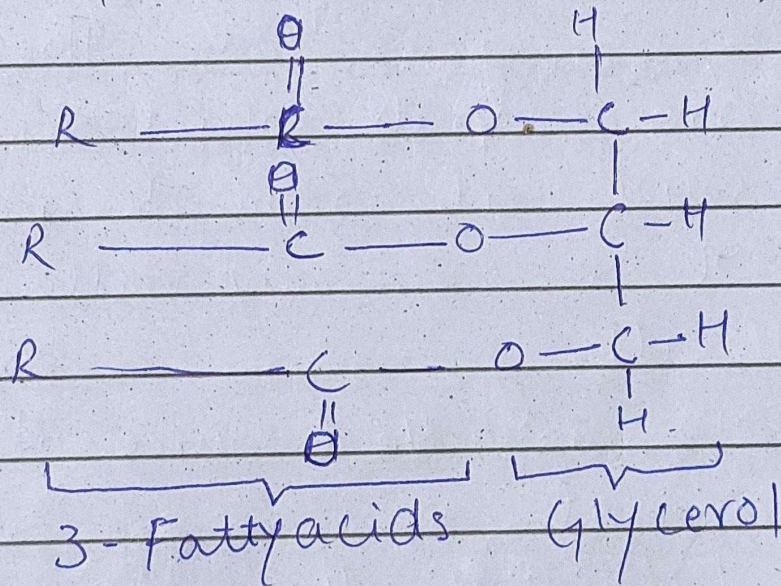 O H
||  |
R — C — O — C — H
O |
|| 
R — C — O — C — H
|
R — C — O — C — H
|| |
O H
3 - Fatty acids Glycerol